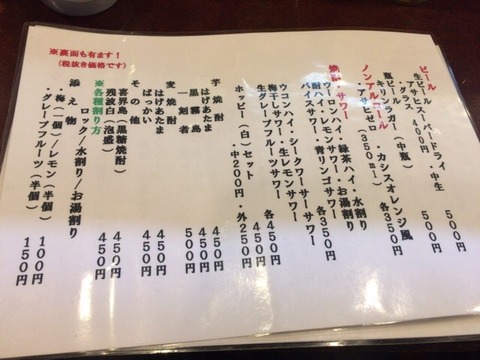 ビール
生ビール スーパードライ・中生 500円
・グラス 400円
瓶ビール(中瓶) 500円
ノンアルコール
・アサヒゼロ(350ml)・カシスオレンジ風 各350円
焼酎・サワー
ウーロンハイ・緑茶ハイ・水割り
酎ハイ・レモンサワー・お湯割り
バイスサワー・青リンゴサワー 各350円
ウコンハイ・シークワーサーサワー
梅干しサワー・生レモンサワー 各450円
生グレープフルーツサワー 450円
ホッピー(白)セット
・中200円・外250円
芋焼酎
はげあたま 450円
黒霧島 450円
一刻者 500円
麦焼酎
はげあたま 450円
ばっかい 450円
その他
喜界島(黒糖焼酎) 450円
残波白(泡盛) 450円
※各種割り方
ロック/水割り/お湯割り
添え物
・梅(一個)/レモン(半個) 100円
・グレープフルーツ(半個) 150円
※裏面も有ます!
(税抜き価格です)